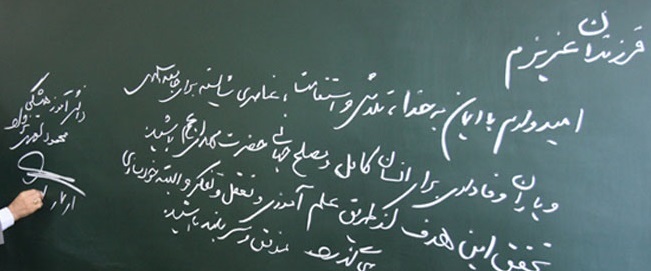 فرزندان عزیزم
امیدوارم با ایمان به خدا، تلاش و استقامت، عناصری شایسته برای جامعه
و یاران وفاداری برای انسان کامل و مصلح جهانی حضرت مهدی (عج) باشید.
تحقق این هدف از طریق علم آموزی و تعقل و تفکر و البته خودسازی
می‌گذرد موفق و سربلند باشید.
دانش آموز همیشگی
محمود احمدی نژاد